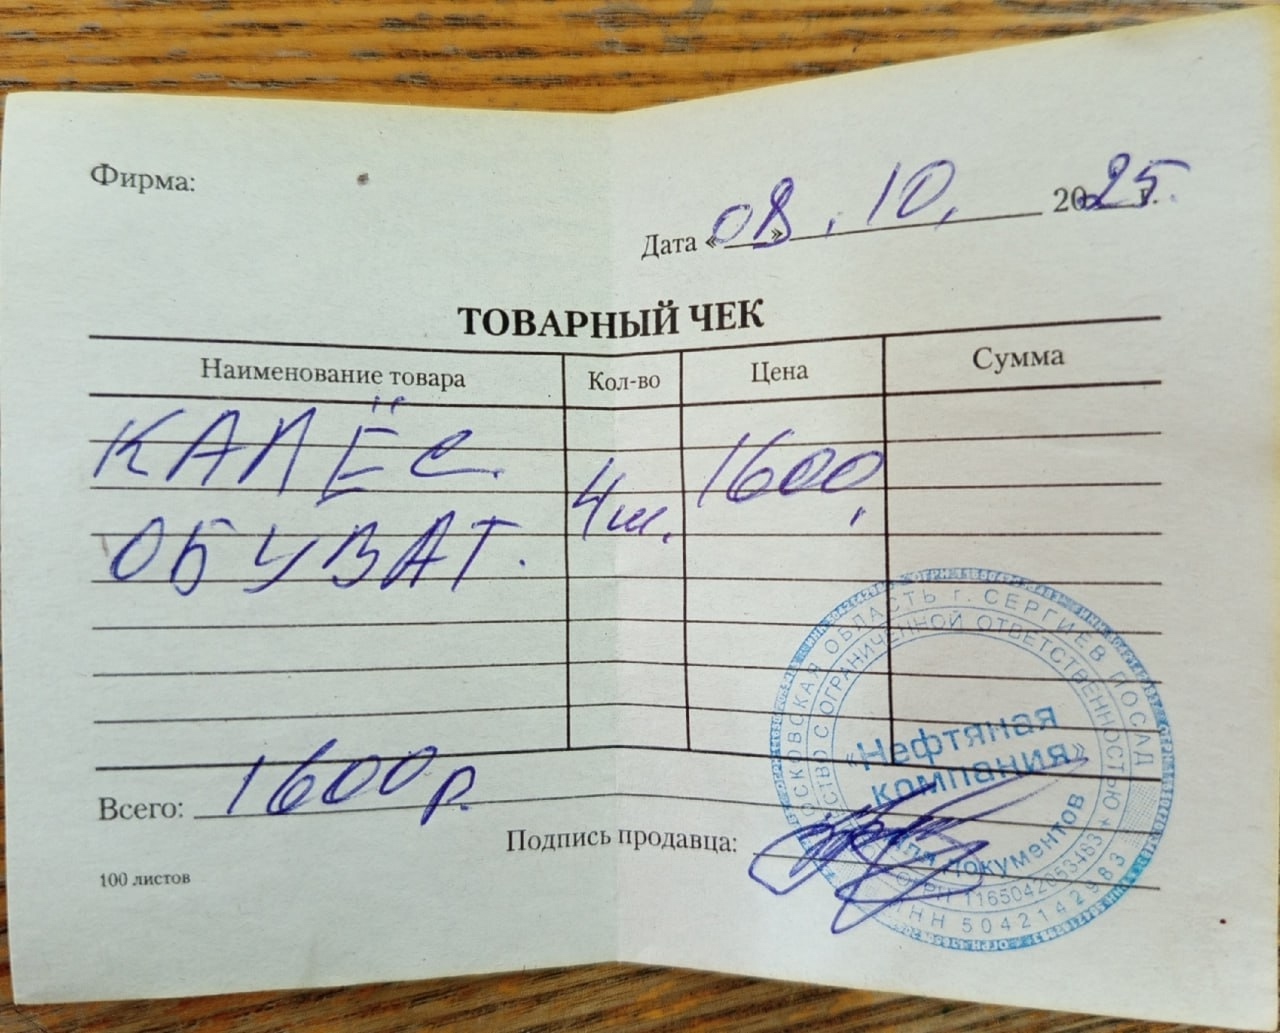 Фирма:
Дата «08» . 10, 2025 г.
ТОВАРНЫЙ ЧЕК
Наименование товара Кол-во Цена Сумма
КАЛЁС 4ш. 1600,
ОБУВАТ.
Всего: 1600р.
Подпись продавца:
100 листов
МОСКОВСКАЯ ОБЛАСТЬ г. СЕРГИЕВ ПОСАД
ОБЩЕСТВО С ОГРАНИЧЕННОЙ ОТВЕТСТВЕННОСТЬЮ
«Нефтяная
компания»
Для документов
ОГРН 1165042053483
ИНН 5042142983